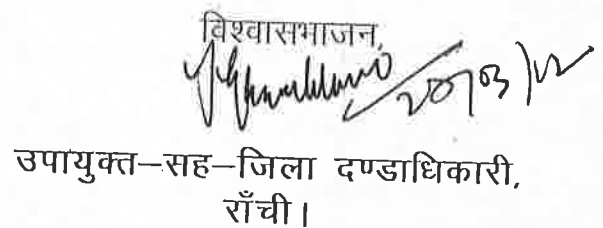 विश्वासभाजन,
20/03/12
उपायुक्त–सह–जिला दण्डाधिकारी,
राँची।